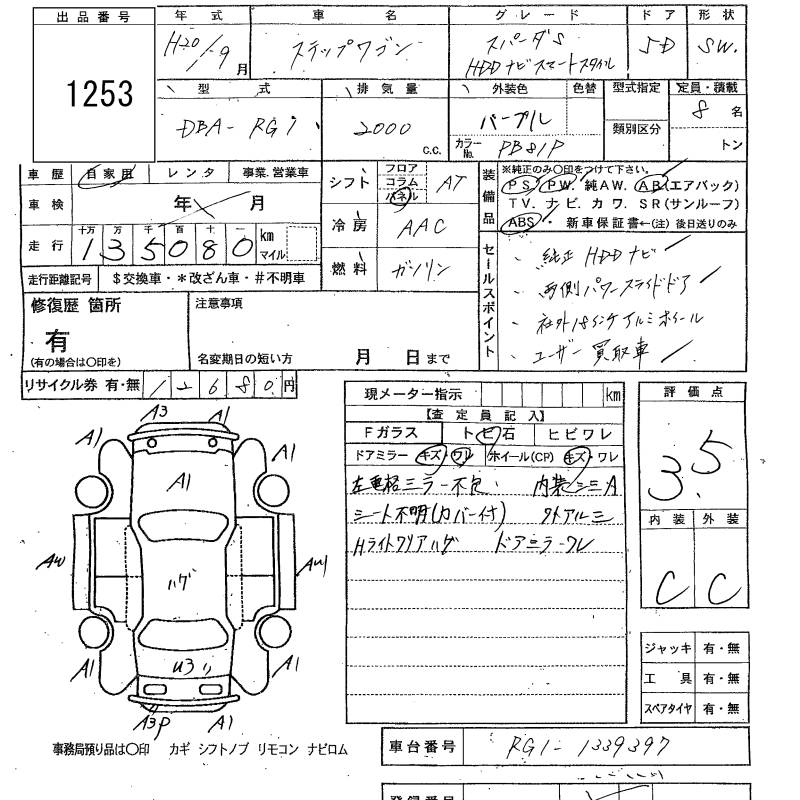 出品番号
1253
年式
H20/9月
車名
ステップワゴン
グレード
スパーダS
HDDナビスマートスタイル
ドア
5D
形状
SW.
型式
DBA-RG1
排気量
2000
c.c.
外装色
パープル
色替
カラーNo.
PB81P
型式指定
類別区分
定員・積載
8名
トン
車歴
自家用
レンタ
事業.営業車
車検
年 月
走行
十万 万 千 百 十 一
135080
km
マイル
走行距離記号
$交換車・*改ざん車・#不明車
シフト
フロア
コラム
パネル
AT
冷房
AAC
燃料
ガソリン
装備品
※純正のみ○印をつけて下さい。
PS. PW. 純AW. AB(エアバック)
TV. ナビ. カワ. SR(サンルーフ)
ABS・ 新車保証書←(注) 後日送りのみ
セールスポイント
純正 HDDナビ
両側パワースライドドア
社外18インチアルミホイール
ユーザー買取車
修復歴 箇所
有
(有の場合は○印を)
注意事項
名変期日の短い方 月 日まで
リサイクル券 有・無
12680円
現メーター指示
km
【査定員記入】
Fガラス
トビ石
ヒビワレ
ドアミラー
キズ・ワレ
ホイール(CP)
キズ・ワレ
シート不明(カバー付) 外アルミ
Hライトクリアハゲ ドアミラーワレ
評価点
3.5
内装 外装
C C
ジャッキ 有・無
工具 有・無
スペアタイヤ 有・無
A3 A1
A1 A1
A1
AW AW1
ハゲ
A1 A1
U3
A3P A1
事務局預り品は○印 カギ シフトノブ リモコン ナビロム
車台番号
RG1-1339397
登録番号